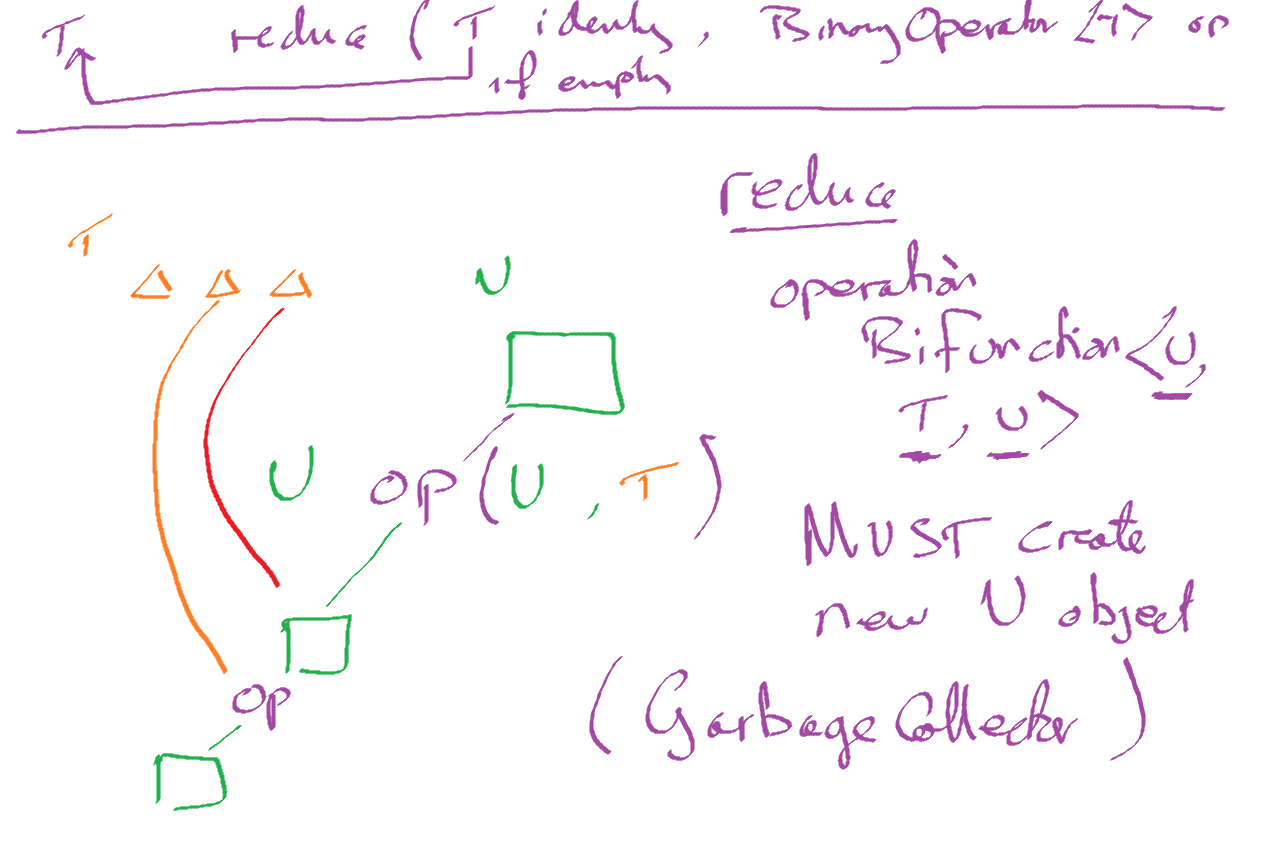 T reduce ( T identity, BinaryOperator <T> op
if empty
reduce
T
U
operation
Bifunction<U,
T, U>
U
op(U, T)
MUST create
new U object
op
(Garbage Collector)